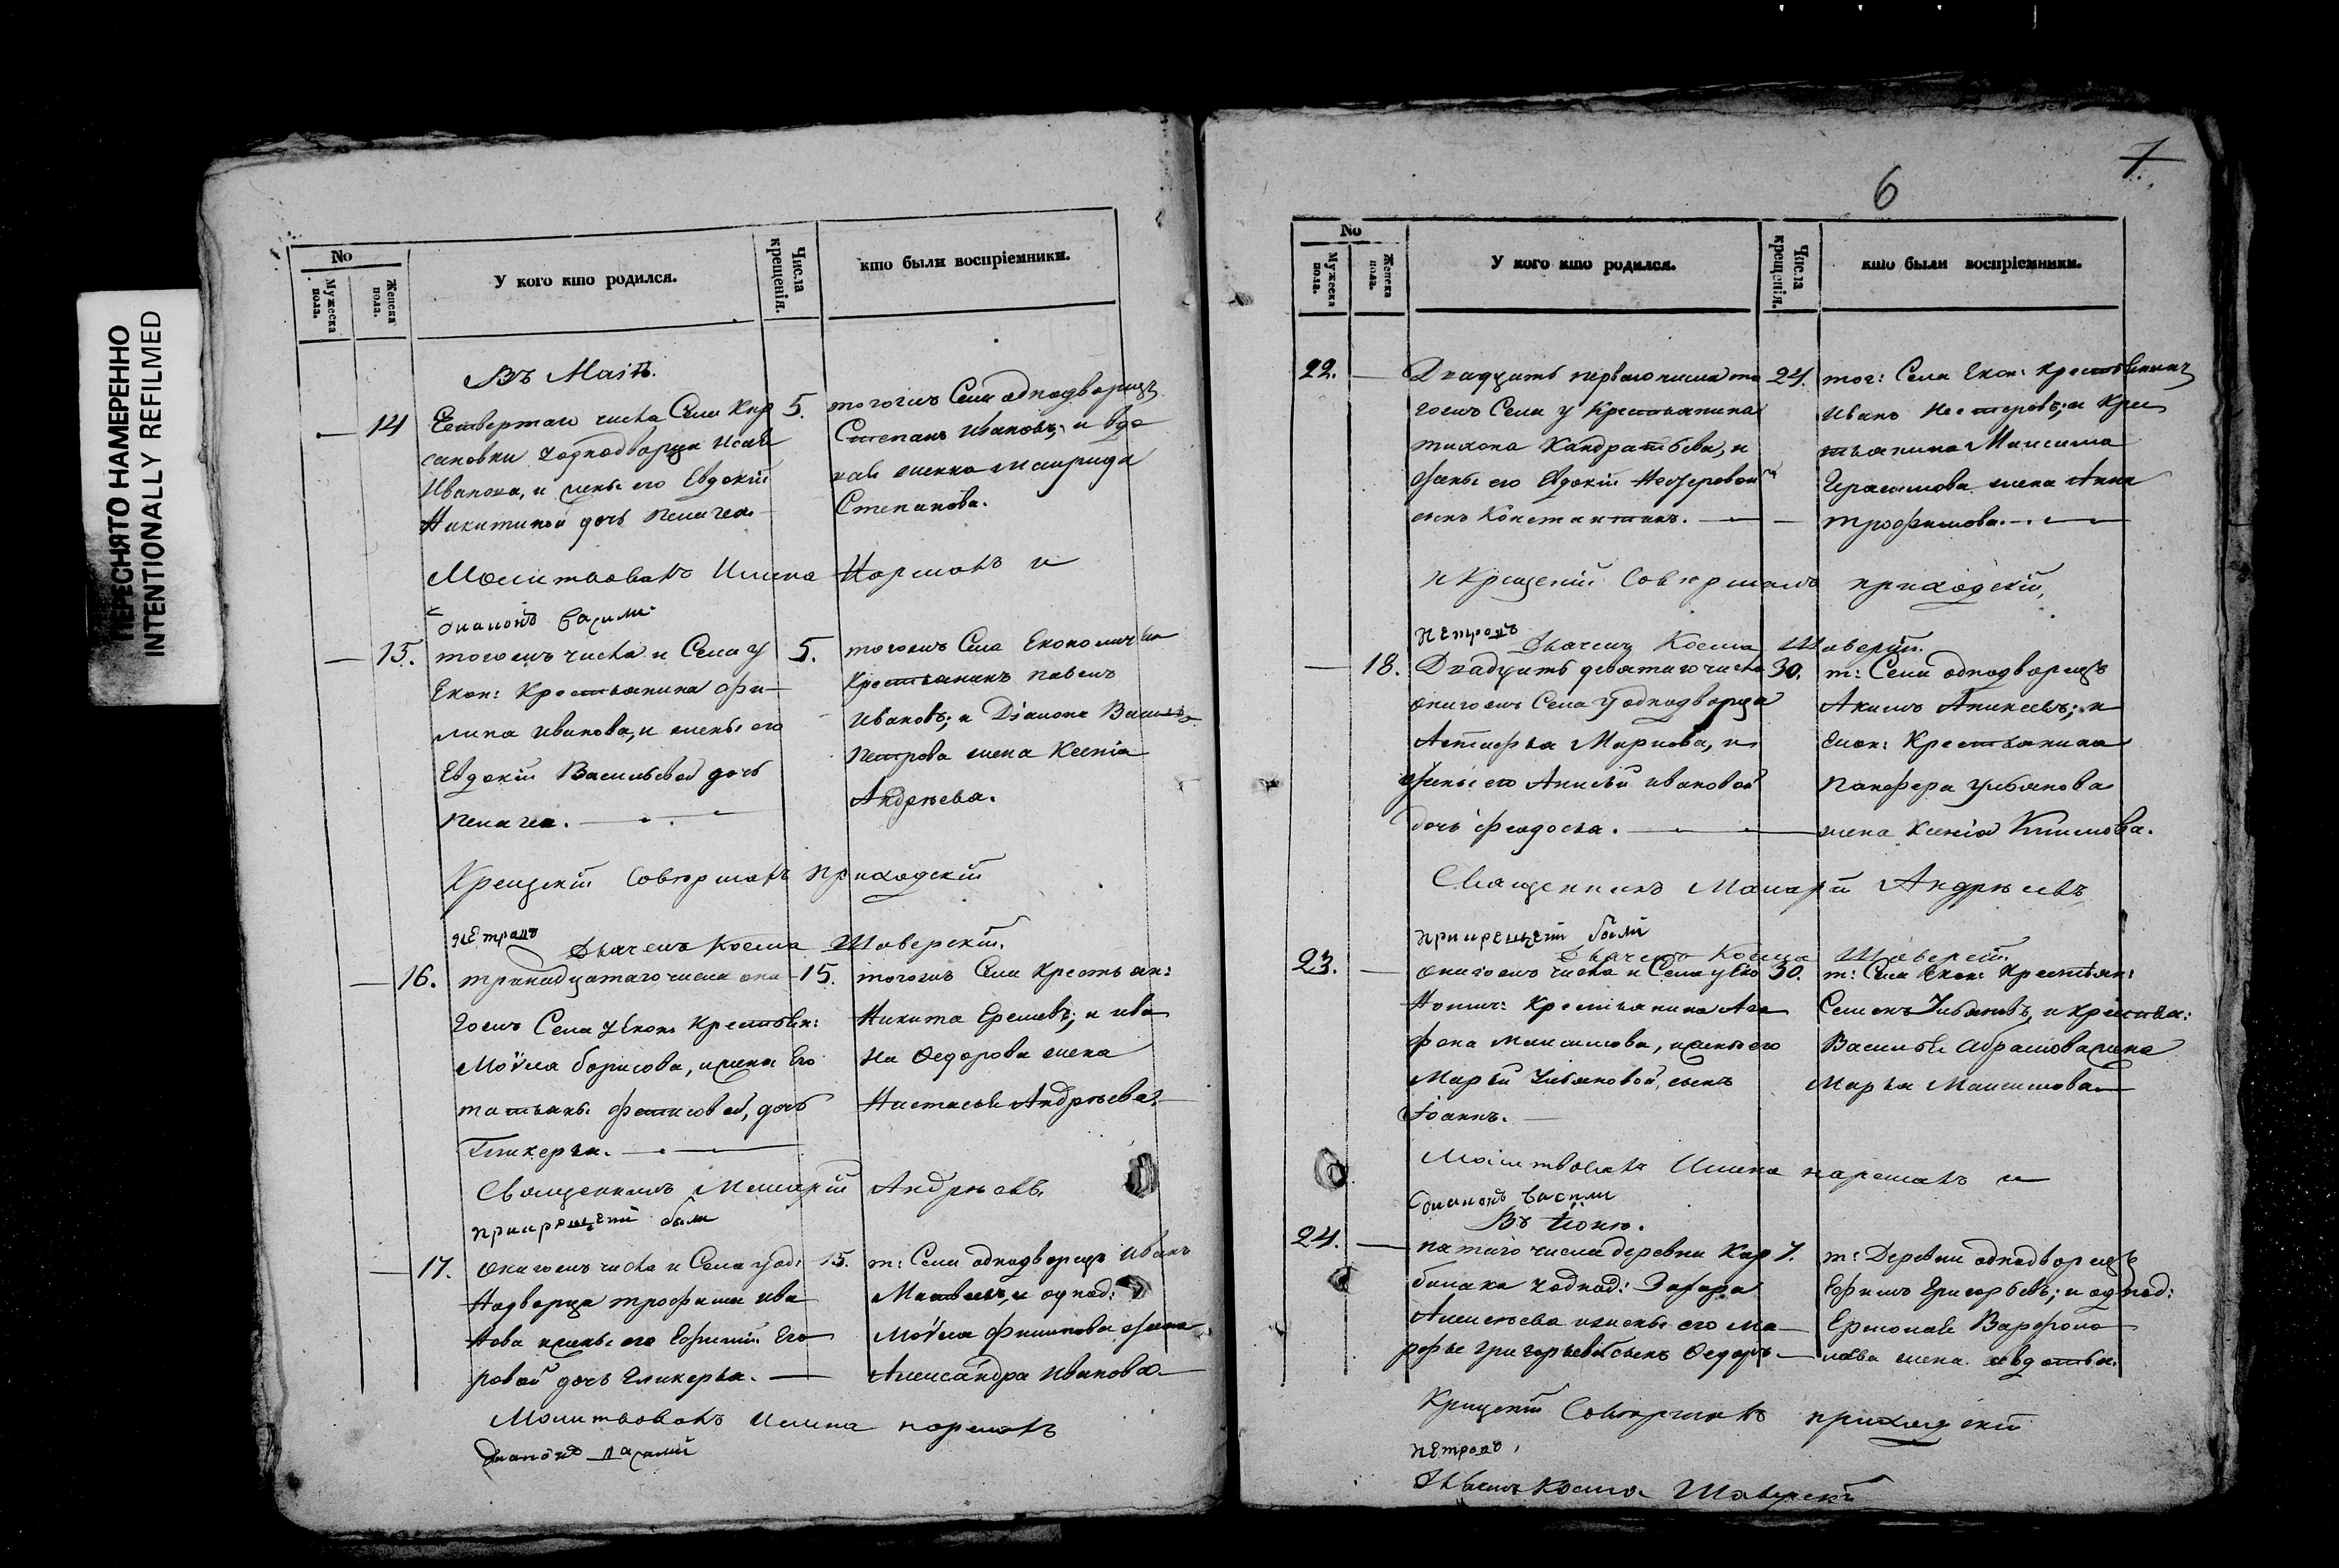 ПЕРЕСНЯТО НАМЕРЕННО
INTENTIONALLY REFILMED
No
Мужеска пола.
Женска пола.
У кого кто родился.
Числа крещенія.
кто были воспріемники.
Въ Маіѣ.
14 Четвертаго числа Села Кир 5.
сановки у однодворца Исаи
Иванова, и жены его Евдокіи
Никитиной дочь Пелагея
тогожъ Села однодворецъ
Степанъ Ивановъ; и вдо
Степанова.
Молитвовалъ Имена Нарекалъ и
діаконъ Васили
15. тогожъ числа и Села у 5.
Екон: Крестьянина Фи
липа Иванова, и жены его
Евдокіи Васильевой дочь
Пелагея.
тогожъ Села Економическ
Крестьянинъ Павелъ
Ивановъ; и Діакона Василья
Петрова жена Ксенія
Андрѣева.
Крещеніи Совершалъ приходскій
Петровъ
Дьячекъ Косма Шаверскій.
16. тринадцатаго числа она 15.
гожъ Села у Екон: Крестьян:
Моѵсея Борисова, и жены Его
татьяны Фетисовой, дочь
Гликерья.
тогожъ Села Крестьян:
Никита Еремевъ; и Ива
на Федорова жена
Настасья Андрѣева.
Священникъ Макарій Андрѣевъ.
при крещеніи были
17. онагожъ числа и Села у од: 15.
нодворца Трофима Ива
нова и жены его Ефиміи Его
ровой дочь Гликерья.
т: Села однодворецъ Иванъ
Матвеевъ, и однод:
Моѵсея Филипова жена
Александра Иванова.
Молитвовалъ Имена нарекалъ
діаконъ Васили
6
7
No
Мужеска пола.
Женска пола.
У кого кто родился.
Числа крещенія.
кто были воспріемники.
22. Двадцать перваго числа то 24.
гожъ Села у Крестьянина
Тихона Кандратьева, и
жены его Евдокіи Несторовой
сынъ Константинъ.
тог: Села Екон: Крестьянинъ
Иванъ Несторовъ; и Крес
тьянина Максима
Герасимова жена Анна
Трофимова.
Крещеніи Совершалъ приходскій
Петровъ
Дьячекъ Косма Шаверскій.
18. Двадцать девятаго числа 30.
онагожъ Села у однодворца
Астафья Маркова, и
жены его Анисьи Ивановой
дочь Феодосья.
т: Села однодворецъ
Акимъ Аникеевъ; и
Екон: Крестьянина
Панфера Ульянова
жена Ксенія Климова.
Священникъ Макарій Андрѣевъ
при крещеніи были
Дьячекъ Косма Шаверскій.
23. онагожъ числа и Села у Еко 30.
номич: Крестьянина Ага
фона Максимова, и жены его
Марьи Ульяновой, сынъ
Іоаннъ.
т: Села Екон: Крестьян:
Семенъ Ульяновъ, и Крестья:
Василья Абрамова жена
Марья Максимова
Молитвовалъ Имена нарекалъ и
діаконъ Васили
Въ Іюнѣ.
24. пятаго числа деревни Кар 7.
балака у однод: Захара
Алексѣева и жены его Ма
рфы Григорьевой сынъ Федоръ
т: Деревни однодворецъ
Ефимъ Григорьевъ; и однод:
Ермолая Варфоло
меева жена Авдотья.
Крещеніи Совершалъ приходскій
Петровъ,
Дьячекъ Косма Шаверскій